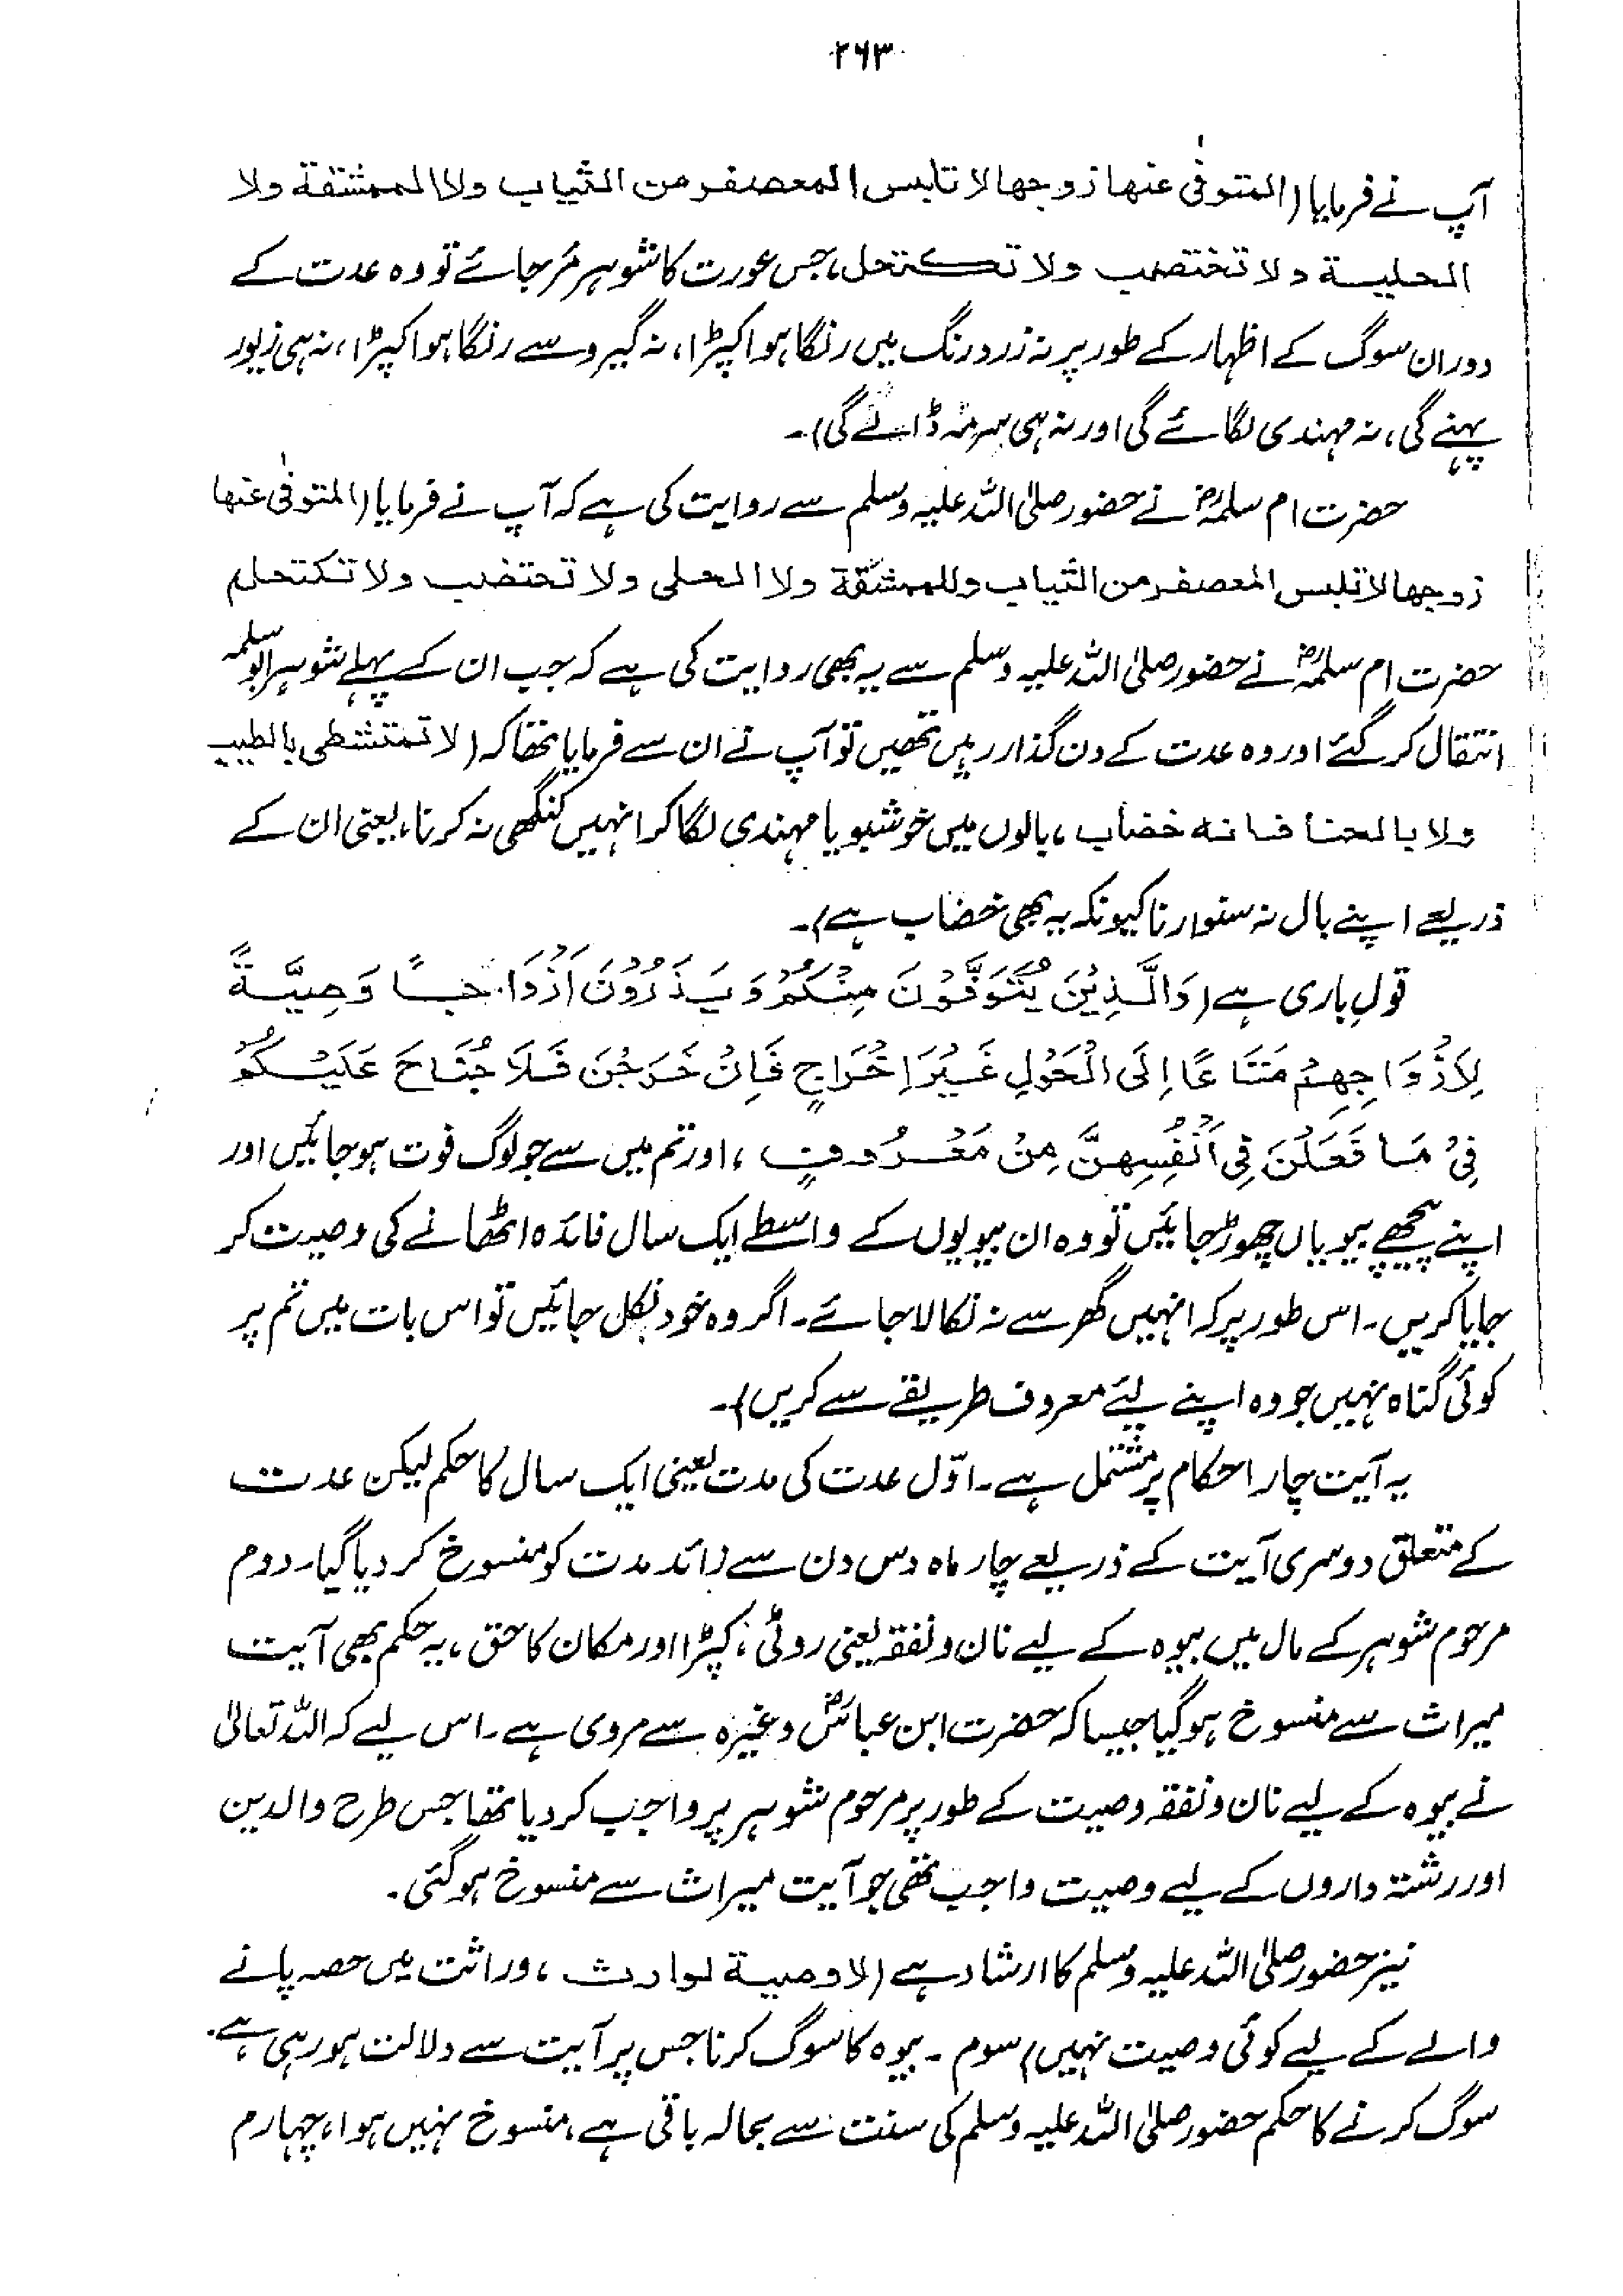 ۲۶۳
آپ نے فرمایا (المتوفیٰ عنها زوجها لا تلبس المعصفر من الثیاب ولا الممشقة ولا
الحلیة ولا تختضب ولا تکتحل، جس عورت کا شوہر مر جائے تو وہ عدت کے
دوران سوگ کے اظہار کے طور پر نہ زرد رنگ میں رنگا ہوا کپڑا، نہ گیرو سے رنگا ہوا کپڑا، نہ ہی زیور
پہنے گی، نہ مہندی لگائے گی اور نہ ہی سرمہ ڈالے گی)۔
حضرت ام سلمہؓ نے حضور صلی اللہ علیہ وسلم سے روایت کی ہے کہ آپ نے فرمایا (المتوفیٰ عنها
زوجها لا تلبس المعصفر من الثیاب وللممشقة ولا الحلی ولا تختضب ولا تکتحل)
حضرت ام سلمہؓ نے حضور صلی اللہ علیہ وسلم سے یہ بھی روایت کی ہے کہ جب ان کے پہلے شوہر ابو سلمہ
انتقال کر گئے اور وہ عدت کے دن گذار رہیں تھیں تو آپ نے ان سے فرمایا تھا کہ (لا تمتشطی بالطیب
ولا بالحنأ فانه خضاب، بالوں میں خوشبو یا مہندی لگا کر انہیں کنگھی نہ کرنا، یعنی ان کے
ذریعے اپنے بال نہ سنوارنا کیونکہ یہ بھی خضاب ہے)۔
قولِ باری ہے (وَالَّذِیْنَ یُتَوَفَّوْنَ مِنْکُمْ وَیَذَرُوْنَ اَزْوَاجًا وَصِیَّةً
لِاَزْوَاجِهِمْ مَتَاعًا اِلَی الْحَوْلِ غَیْرَ اِخْرَاجٍ فَاِنْ خَرَجْنَ فَلَا جُنَاحَ عَلَیْکُمْ
فِیْ مَا فَعَلْنَ فِیْ اَنْفُسِهِنَّ مِنْ مَعْرُوْفٍ، اور تم میں سے جو لوگ فوت ہو جائیں اور
اپنے پیچھے بیویاں چھوڑ جائیں تو وہ ان بیویوں کے واسطے ایک سال فائدہ اٹھانے کی وصیت کر
جایا کریں۔ اس طور پر کہ انہیں گھر سے نہ نکالا جائے۔ اگر وہ خود نکل جائیں تو اس بات میں تم پر
کوئی گناہ نہیں جو وہ اپنے لیئے معروف طریقے سے کریں)۔
یہ آیت چار احکام پر مشتمل ہے۔ اوّل عدت کی مدت یعنی ایک سال کا حکم لیکن عدت
کے متعلق دوسری آیت کے ذریعے چار ماہ دس دن سے زائد مدت کو منسوخ کر دیا گیا۔ دوم
مرحوم شوہر کے مال میں بیوہ کے لیے نان و نفقہ یعنی روٹی، کپڑا اور مکان کا حق، یہ حکم بھی آیت
میراث سے منسوخ ہو گیا جیسا کہ حضرت ابن عباسؓ وغیرہ سے مروی ہے۔ اس لیے کہ اللہ تعالیٰ
نے بیوہ کے لیے نان و نفقہ وصیت کے طور پر مرحوم شوہر پر واجب کر دیا تھا جس طرح والدین
اور رشتہ داروں کے لیے وصیت واجب تھی جو آیت میراث سے منسوخ ہو گئی۔
نیز حضور صلی اللہ علیہ وسلم کا ارشاد ہے (لا وصیة لوارث، وراثت میں حصہ پانے
والے کے لیے کوئی وصیت نہیں) سوم۔ بیوہ کا سوگ کرنا جس پر آیت سے دلالت ہو رہی ہے۔
سوگ کرنے کا حکم حضور صلی اللہ علیہ وسلم کی سنت سے بحالہ باقی ہے، منسوخ نہیں ہوا، چہارم